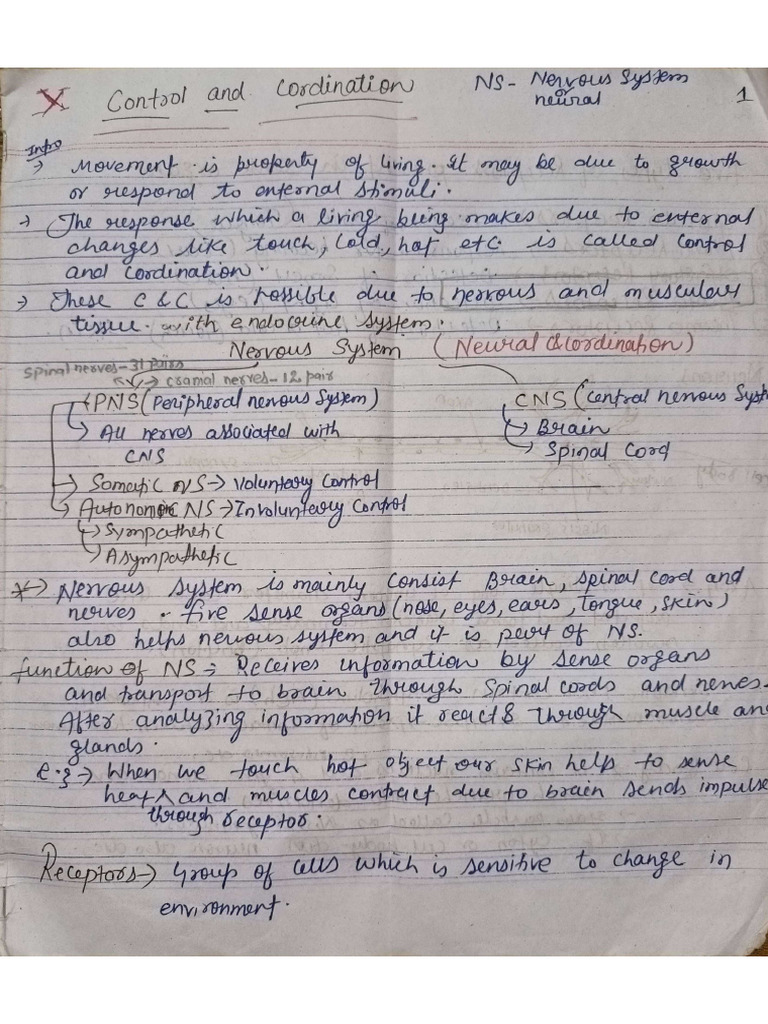 X Control and Cordination NS- Nervous System 1
or
neural
Intro
→ Movement is property of living. It may be due to growth
or respond to external stimuli.
→ The response which a living being makes due to external
changes like touch, Cold, hot etc. is called Control
and Cordination.
→ These C & C is Possible due to nervous and muscular
tissue. with endocrine system.
Nervous System (Neural Cordination)
Spinal nerves-31 Pairs
→ cranial nerves-12 pair
PNS (Peripheral nervous System) CNS (Central nervous Syst
→ All nerves associated with → Brain
CNS → Spinal Cord
→ Somatic NS → Voluntary Control
→ Autonomic NS → Involuntary Control
→ Sympathetic
→ Asympathetic
*→ Nervous system is mainly Consist Brain, spinal cord and
nerves. five sense organs (nose, eyes, ears, tongue, skin)
also helps nervous system and it is part of NS.
function of NS → Receives information by sense organs
and transport to brain through Spinal cords and nerves.
After analyzing information it reacts through muscle an
glands.
e.g → When we touch hot object our skin help to sense
heat and muscles contract due to brain sends impulse
through receptor.
Receptors → Group of cells which is sensitive to change in
environment.